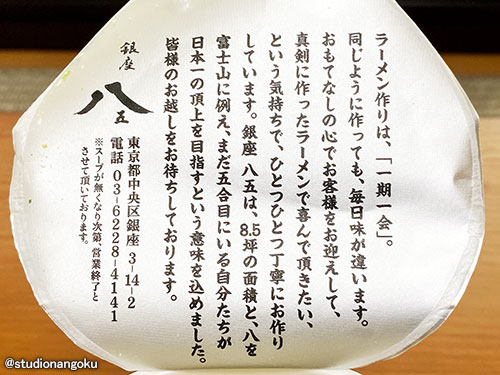 ラーメン作りは、「一期一会」。
同じように作っても、毎日味が違います。
おもてなしの心でお客様をお迎えして、
真剣に作ったラーメンで喜んで頂きたい、
という気持ちで、ひとつひとつ丁寧にお作り
しています。銀座 八五は、8.5坪の面積と、八を
富士山に例え、まだ五合目にいる自分たちが
日本一の頂上を目指すという意味を込めました。
皆様のお越しをお待ちしております。
銀座
八五
東京都中央区銀座 3-14-2
電話 03-6228-4141
※スープが無くなり次第、営業終了と
させて頂いております。
@studionangoku